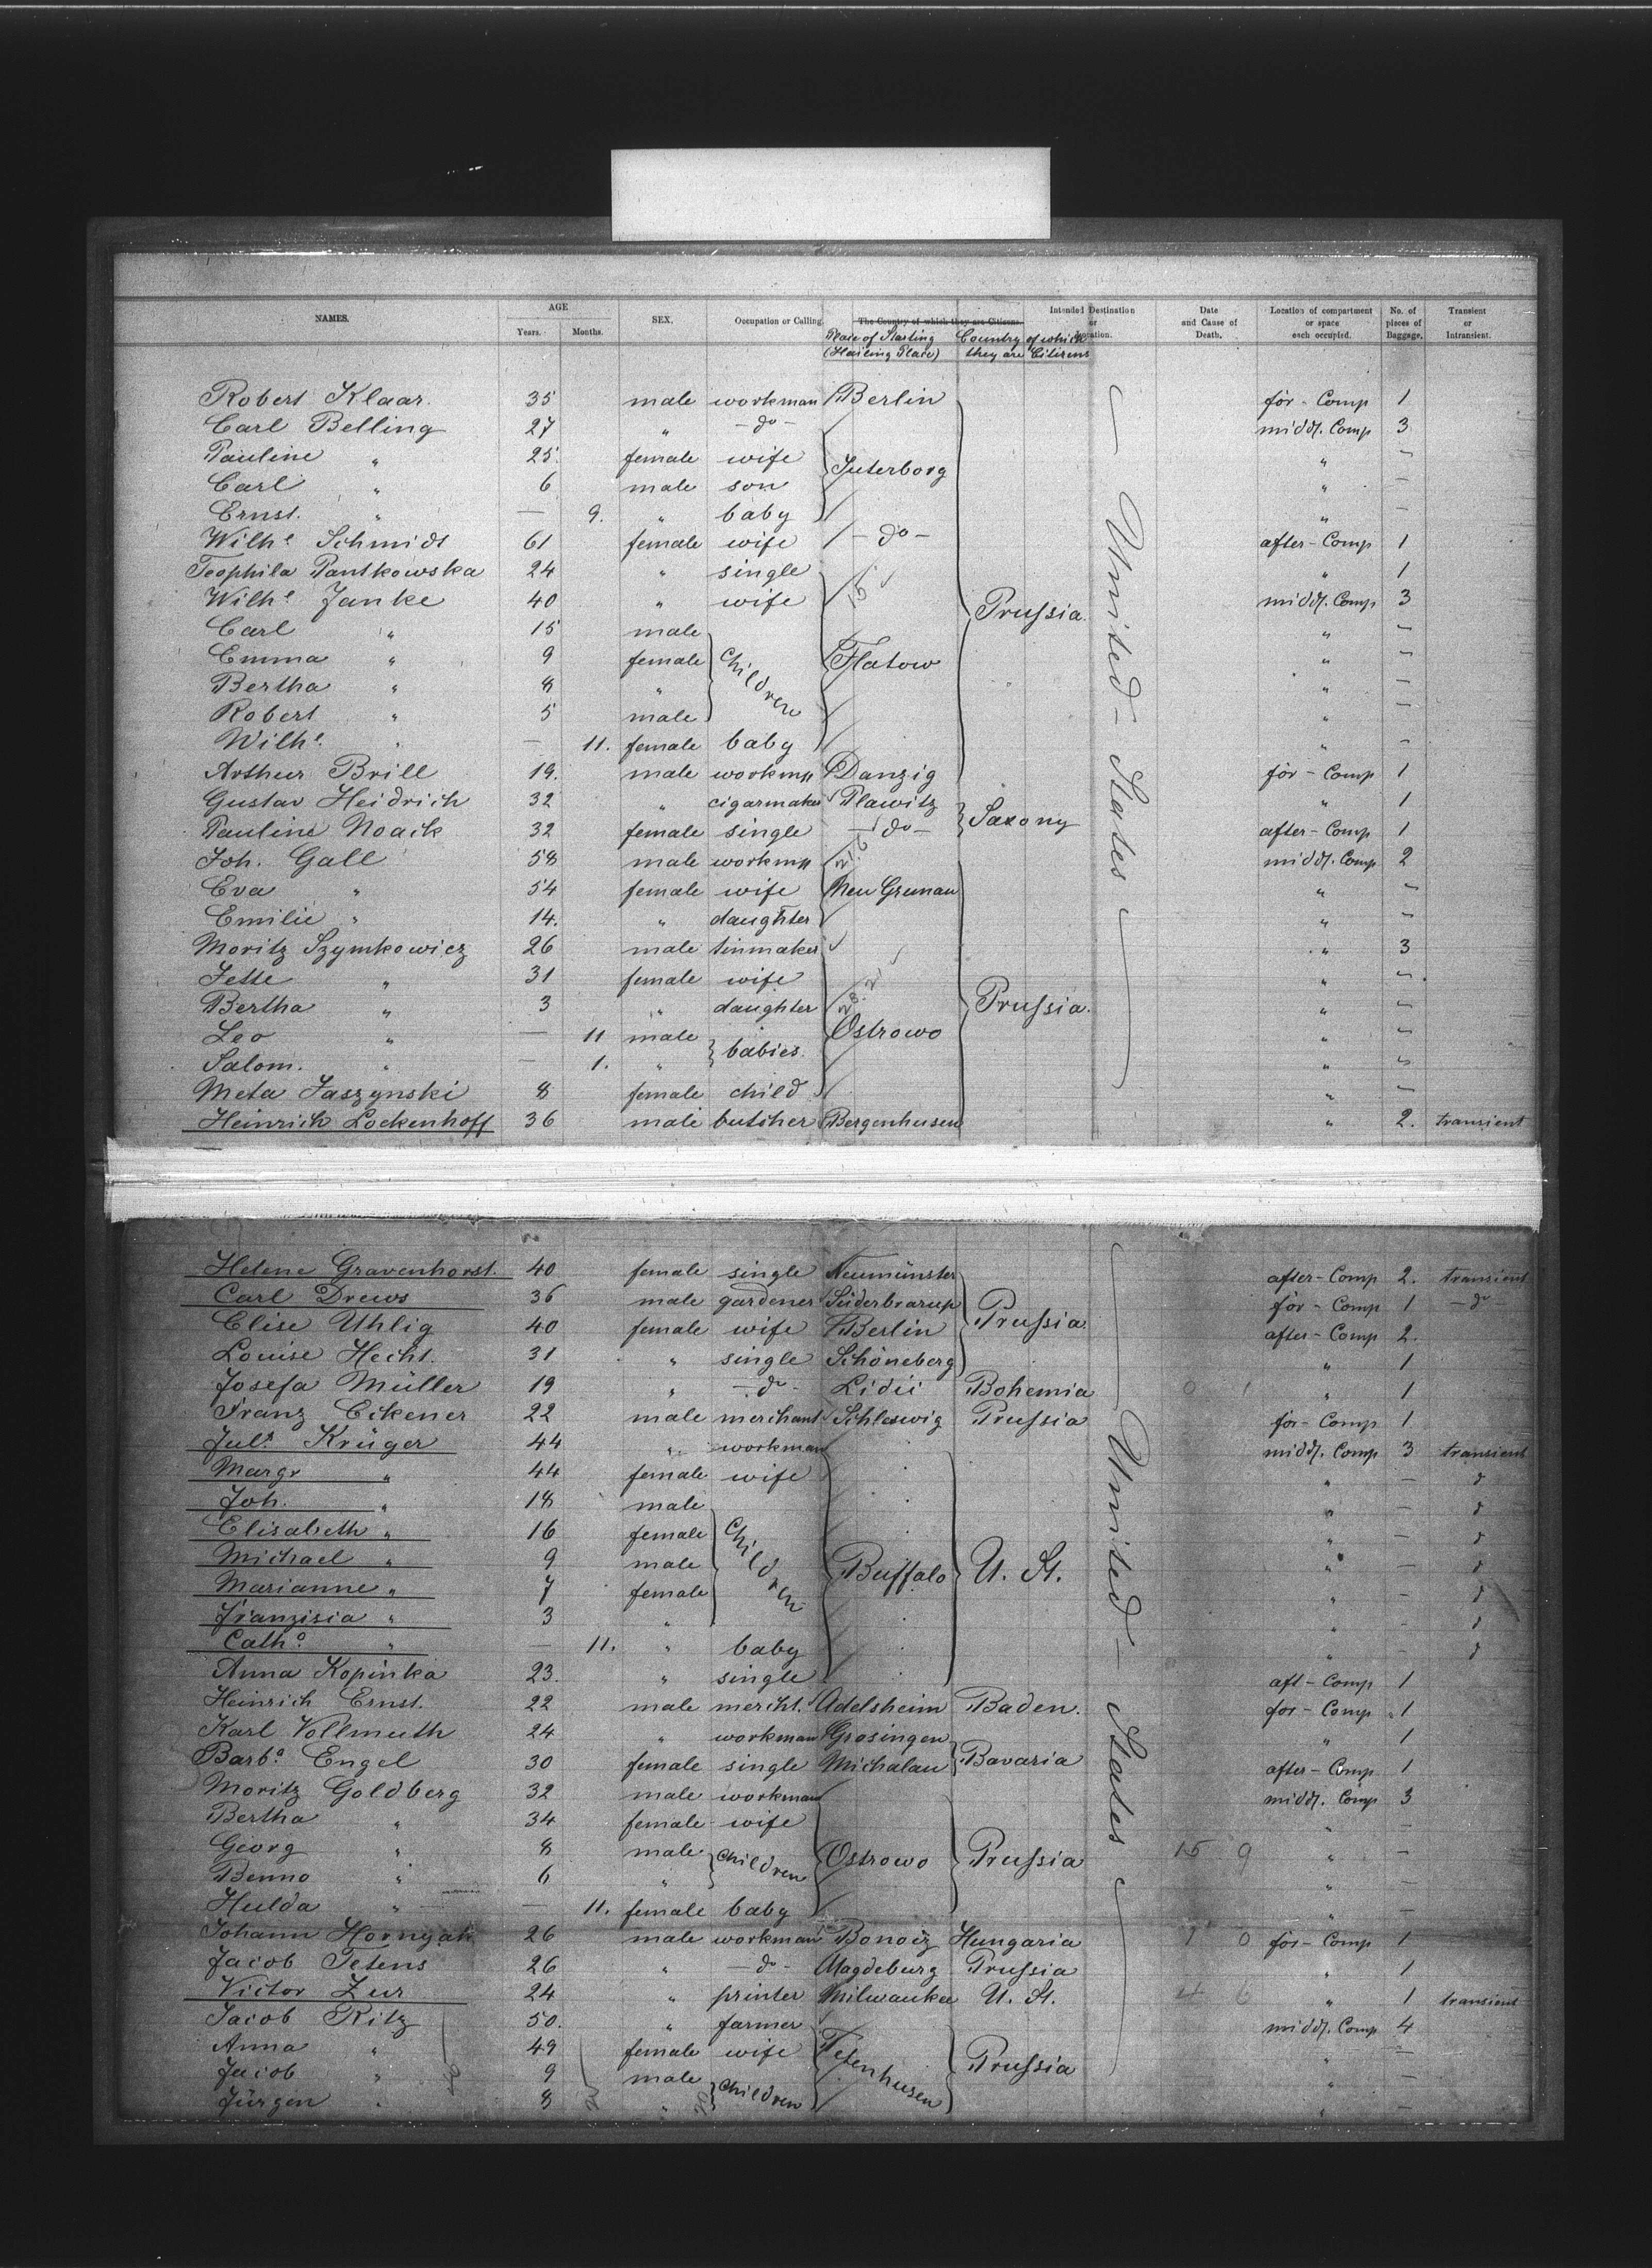 NAMES. AGE Years. Months. SEX. Occupation or Calling. The Country of which they are Citizens. Intended Destination or Location. Date and Cause of Death. Location of compartment or space each occupied. No. of pieces of Baggage. Transient or Intransient.
Place of Starting (Hailing Place) Country of which they are Citizens
Robert Klaar. 35 male workman Berlin för - Comp 1
Carl Belling 27 " - do - middl. Comp 3
Pauline " 25. female wife Juterborg " "
Carl " 6 male son " -
Ernst. " — 9. " baby " -
Wilhe Schmidt 61 female wife - do - after - Comp 1
Teophila Pantkowska 24 " single " 1
Wilhe Janke 40 " wife Prussia. middl. Comp 3
Carl " 15 male " "
Emma " 9 female Children Flatow " "
Bertha " 8 " " -
Robert " 5 male " -
Wilhe. " — 11. female baby " -
Arthur Brill 19. male workm Danzig för - Comp 1
Gustav Heidrich 32 " cigarmaker Plawitz Saxony " 1
Pauline Noack 32 female single - do - after - Comp 1
Joh. Gall 58 male workm middl. Comp 2
Eva " 54 female wife Neu Grunau " "
Emilie " 14. " daughter " "
Moritz Szymkowicz 26 male tinmaker " 3
Jette " 31 female wife " "
Bertha " 3 " daughter Prussia. " "
Leo " — 11 male babies. Ostrowo " "
Salom. " — 1. " " "
Meta Jaszynski 8 female child " "
Heinrich Lockenhoff 36 male butcher Bergenhusen " 2. transient
United - States
Helene Gravenhorst. 40 female single Neumünster after - Comp 2. transient
Carl Drews 36 male gardener Süderbrarup Prussia för - Comp 1 - do -
Elise Uhlig 40 female wife Berlin after - Comp 2.
Louise Hecht. 31 " single Schöneberg " 1
Josefa Müller 19 " - do - Lidii Bohemia 0 1 " 1
Franz Eckener 22 male merchant Schleswig Prussia för - Comp 1
Juls Krüger 44 " workman middl. Comp 3 transient
Margr " 44 female wife " - d
Joh. " 18 male " - d
Elisabeth " 16 female Children " - d
Michael " 9 male Buffalo U. St. " - d
Marianne " 7 female " - d
Franzisia " 3 " " - d
Catha. " — 11. " baby " - d
Anna Kopinka 23. " single aft - Comp 1
Heinrich Ernst. 22 male mercht. Adelsheim Baden. for - Comp 1
Karl Vollmuth 24 " workman Grosingen Bavaria " 1
Barba. Engel 30 female single Michalau after - Comp 1
Moritz Goldberg 32 male workman middl. Comp 3
Bertha " 34 female wife " -
Georg " 8 male Children Ostrowo Prussia 15 9 " -
Benno " 6 " " -
Hulda " — 11. female baby " -
Johann Hornyak 26 male workman Bonoiz Hungaria 1 0 för - Comp 1
Jacob Tetens 26 " - do - Magdeburg Prussia " 1
Victor Zur 24 " printer Milwaukee U. St. 4 6 " 1 transient
Jacob Ritz 50. " farmer middl. Comp 4
Anna " 49 female wife Tetenhusen Prussia " -
Jacob " 9 male Children " -
Jürgen " 8 " " -
United - States